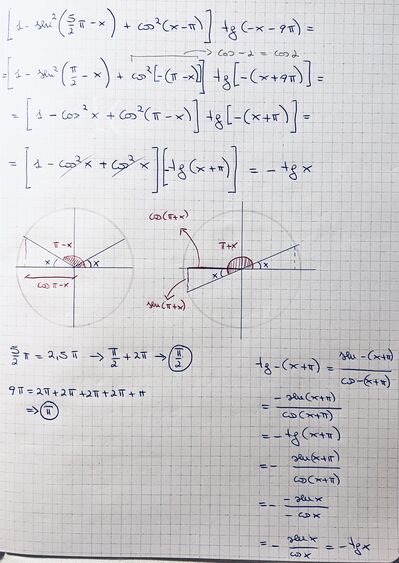 [1 - sin²(5/2 π - x) + cos²(x - π)] tg(-x - 9π) =
→ cos -2 = cos 2
= [1 - sin²(π/2 - x) + cos²[-(π - x)]] tg[-(x + 9π)] =
= [1 - cos²x + cos²(π - x)] tg[-(x + π)] =
= [1 - cos²x + cos²x] [-tg(x + π)] = - tg x
cos(π+x)
π-x
x
x
cos π-x
π+x
x
x
sin(π+x)
5/2 π = 2,5π → π/2 + 2π → π/2
9π = 2π + 2π + 2π + 2π + π
⇒ π
tg -(x+π) = sin -(x+π) / cos -(x+π)
= - sin(x+π) / cos(x+π)
= - tg(x+π)
= - sin(x+π) / cos(x+π)
= - - sin x / - cos x
= - sin x / cos x = - tg x